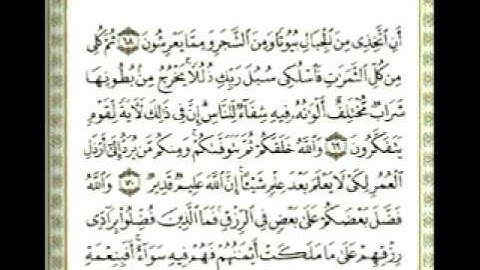 أَنِ ٱتَّخِذِى مِنَ ٱلْجِبَالِ بُيُوتًا وَمِنَ ٱلشَّجَرِ وَمِمَّا يَعْرِشُونَ ٦٨ ثُمَّ كُلِى
مِن كُلِّ ٱلثَّمَرَٰتِ فَٱسْلُكِى سُبُلَ رَبِّكِ ذُلُلًا يَخْرُجُ مِنۢ بُطُونِهَا
شَرَابٌ مُّخْتَلِفٌ أَلْوَٰنُهُۥ فِيهِ شِفَآءٌ لِّلنَّاسِ إِنَّ فِى ذَٰلِكَ لَـَٔايَةً لِّقَوْمٍ
يَتَفَكَّرُونَ ٦٩ وَٱللَّهُ خَلَقَكُمْ ثُمَّ يَتَوَفَّىٰكُمْ وَمِنكُم مَّن يُرَدُّ إِلَىٰٓ أَرْذَلِ
ٱلْعُمُرِ لِكَىْ لَا يَعْلَمَ بَعْدَ عِلْمٍ شَيْـًٔا إِنَّ ٱللَّهَ عَلِيمٌ قَدِيرٌ ٧٠ وَٱللَّهُ
فَضَّلَ بَعْضَكُمْ عَلَىٰ بَعْضٍ فِى ٱلرِّزْقِ فَمَا ٱلَّذِينَ فُضِّلُوا۟ بِرَآدِّى
رِزْقِهِمْ عَلَىٰ مَا مَلَكَتْ أَيْمَٰنُهُمْ فَهُمْ فِيهِ سَوَآءٌ أَفَبِنِعْمَةِ